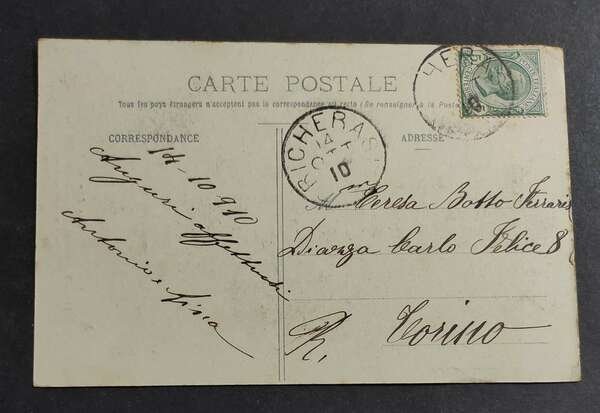 CARTE POSTALE
Tous les pays étrangers n'acceptent pas la correspondance au recto (Se renseigner à la Poste
CORRESPONDANCE
ADRESSE
HER
RICHERAS
14
OTT
10
14-10-910
Auguri affettuosi
Antonio e Nina
Teresa Botto Ferraris
Piazza Carlo Felice 8
R. Torino